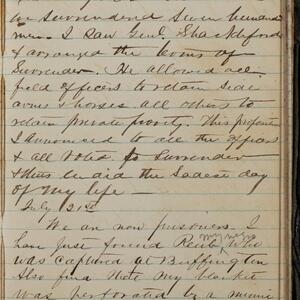 we surrendered seven hundred
men. I saw Genl. Shackleford
& arranged the terms of
Surrender. He allowed all
field officers to retain side
arms & horses all others to
retain private
I announced to all the officers
& all voted to surrender
& thus ended the Saddest day
of my life —
July 21st
We are now prisoners. I
have just found my negro who
was captured at Buffington
Also find that my blanket
was perforated by a minnie